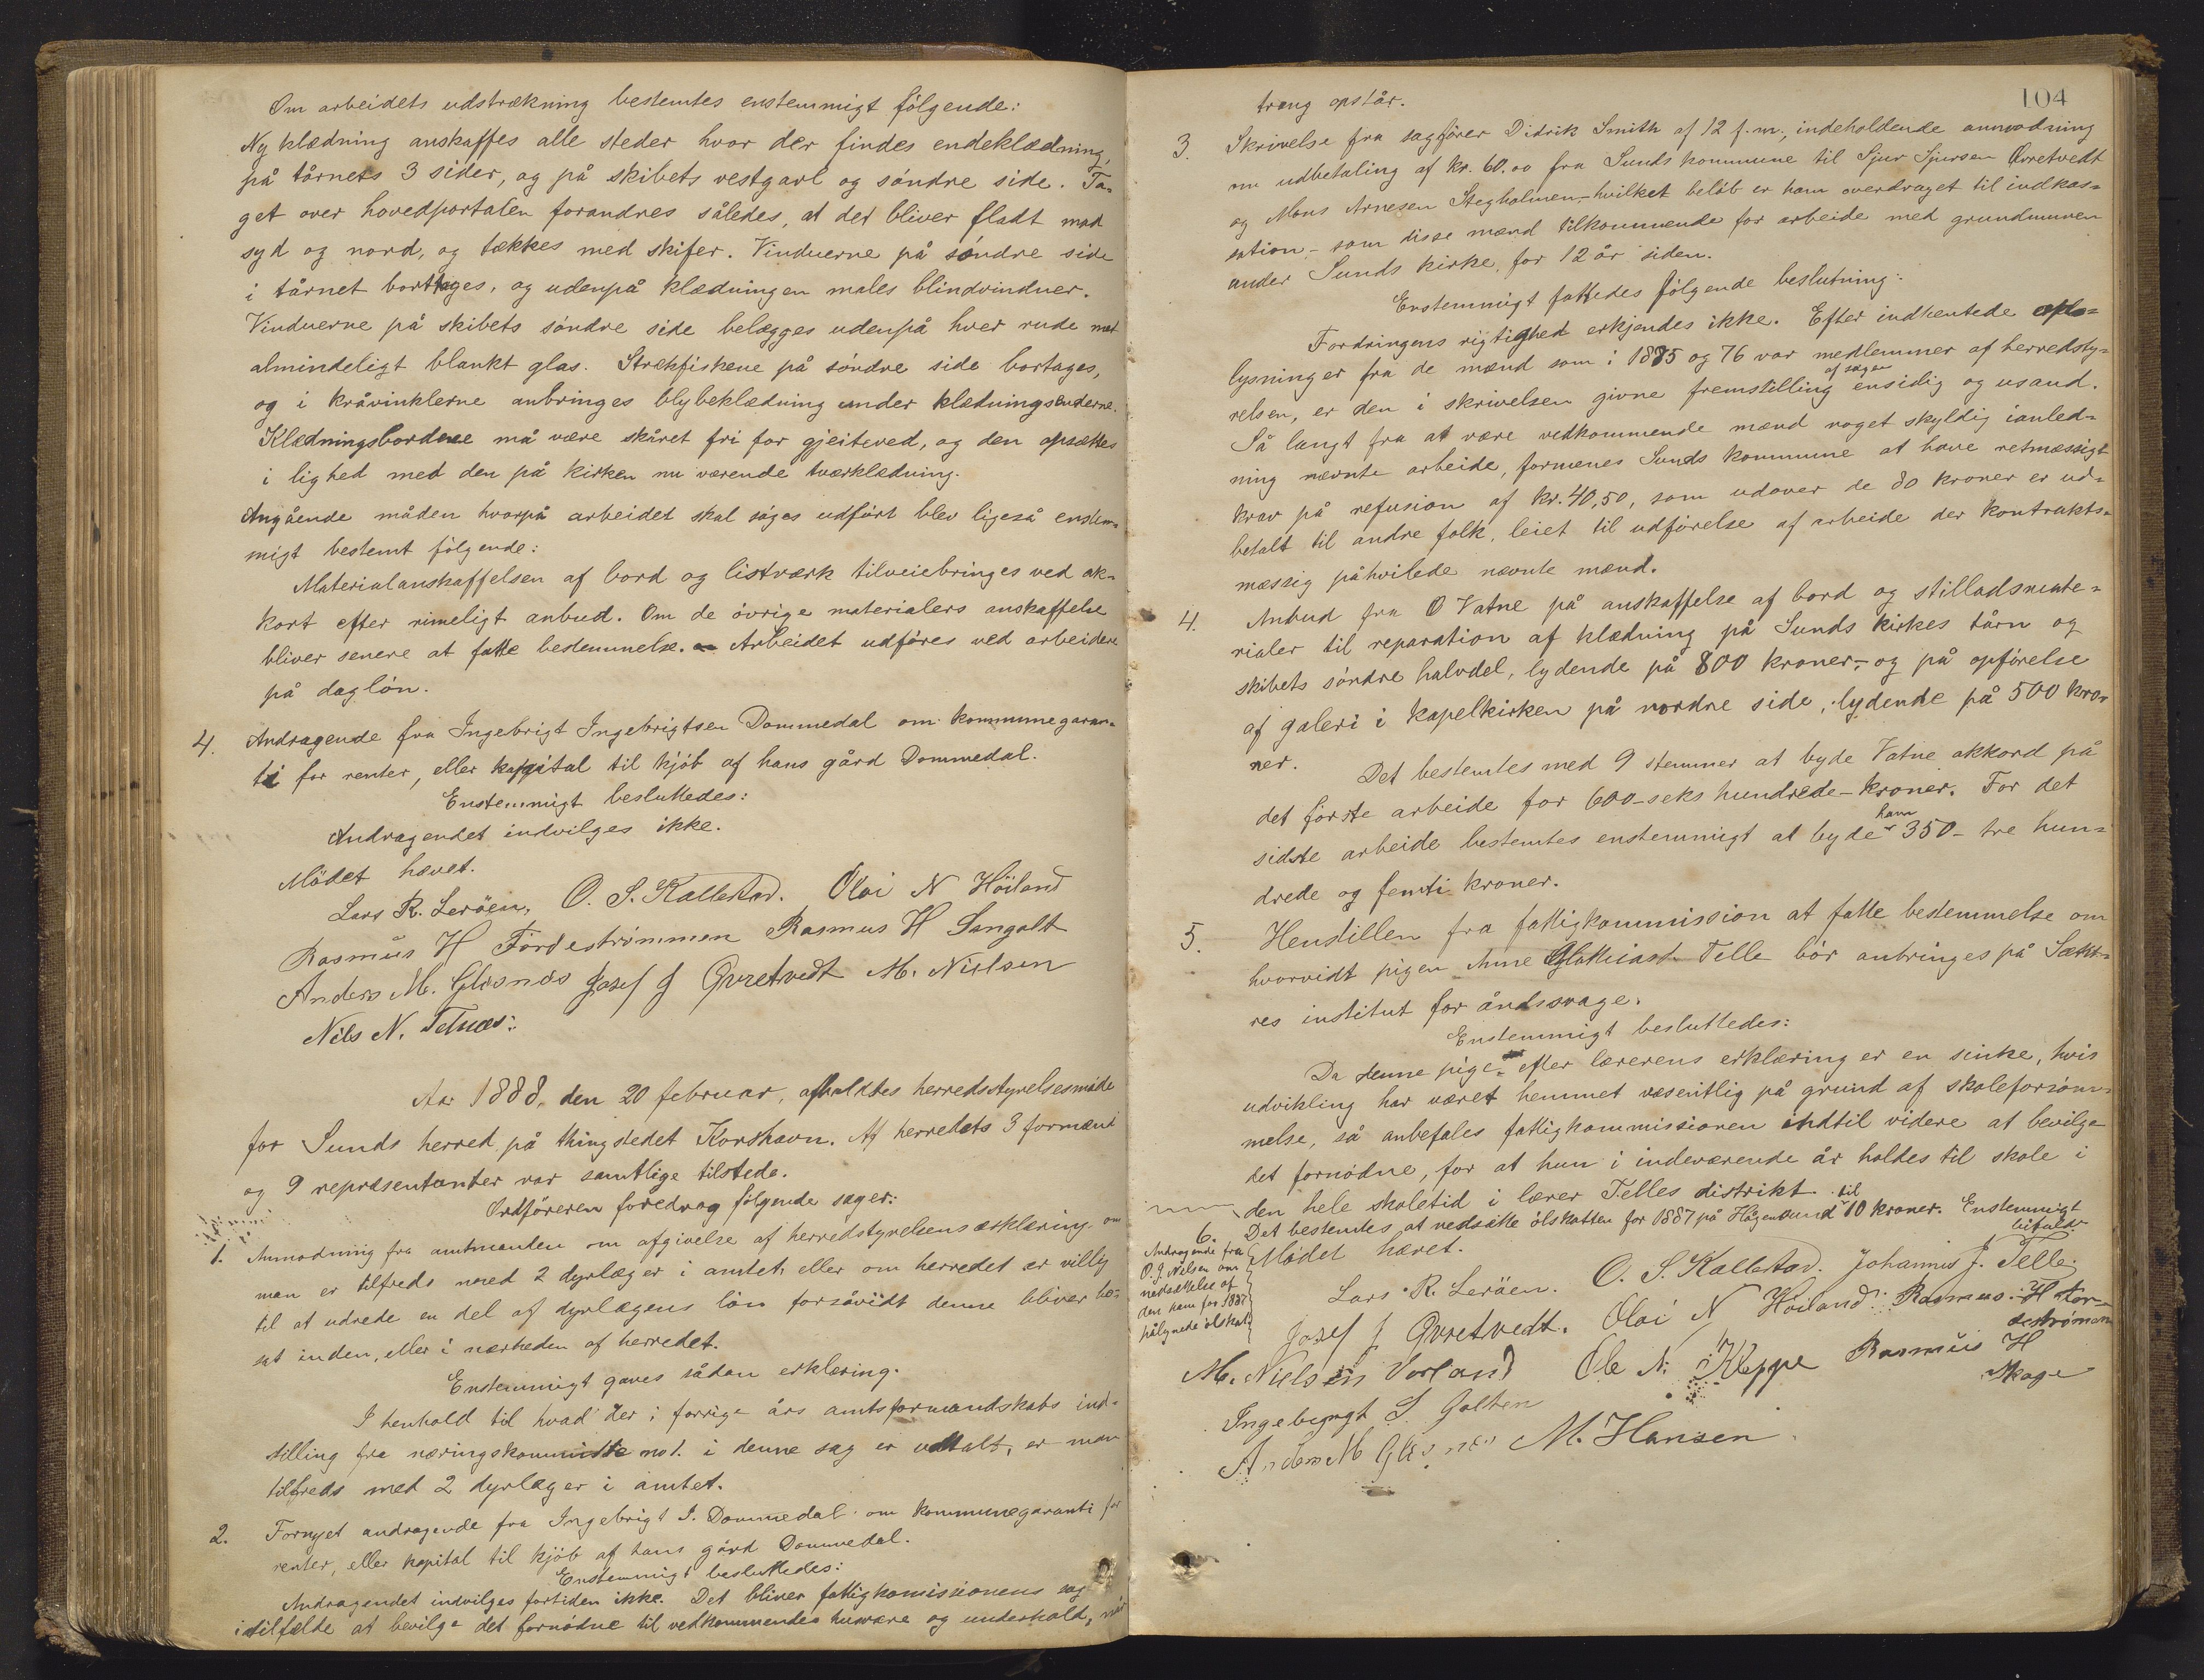 Om arbeidets udstrækning bestemtes enstemmigt følgende:
Ny klædning anskaffes alle steder hvor der findes endeklædning,
på tårnets 3 sider, og på skibets vestgavl og søndre side. Ta-
get over hovedportalen forandres således, at det bliver fladt mod
syd og nord, og tækkes med skifer. Vinduerne på søndre side
i tårnet borttages, og udenpå klædningen males blindvinduer.
Vinduerne på skibets søndre side belægges udenpå hver rude med
almindeligt blankt glas. Strækfiskene på søndre side bortages,
og i kråvinklerne anbringes blybeklædning under klædningsenderne.
Klædningsbordene må være skåret fri for gjeiteved, og den opsættes
i lighed med den på kirken nu værende tværklædning.
Angående måden hvorpå arbeidet skal søges udført blev ligeså enstem-
migt bestemt følgende:
Materialanskaffelsen af bord og listværk tilveiebringes ved ak-
kort efter rimeligt anbud. Om de øvrige materialers anskaffelse
bliver senere at fatte bestemmelse. Arbeidet udføres ved arbeidere
på dagløn.
4. Andragende fra Ingebrigt Ingebrigtsen Dommedal om kommunegaran-
ti for renter, eller kapital til kjøb af hans gård Dommedal.
Enstemmigt besluttedes:
Andragendet indvilges ikke.
Mødet hævet.
Lars R. Lerøen, O. S. Kallestad. Oloi N Høiland
Rasmus H Førdestrømmen Rasmus H Sangolt
Anders M. Glesnæs Josef J Qvretvedt M. Nielsen
Nils N. Telnæs:
Aar 1888, den 20 februar, afholdtes herredsstyrelsesmøde
for Sunds herred på thingstedet Korshavn. Af herredets 3 formænd
og 9 repræsentanter var samtlige tilstede.
Ordføreren foredrog følgende sager:
1. Anmodning fra amtmanden om afgivelse af herredstyrelsens erklæring om
man er tilfreds med 2 dyrlæger i amtet, eller om herredet er villig
til at udrede en del af dyrlægens løn forsåvidt denne bliver bo-
sat inden, eller i nærheden af herredet.
Enstemmigt gaves sådan erklæring.
I henhold til hvad der i forrige års amtsformandskabs ind-
stilling fra næringskommitte no 1. i denne sag er udtalt, er man
tilfreds med 2 dyrlæger i amtet.
2. Fornyet andragende fra Ingebrigt I. Dommedal om kommunegaranti for
renter, eller kapital til kjøb af hans gård Dommedal.
Enstemmigt besluttedes:
Andragendet indvilges fortiden ikke. Det bliver fattigkomissionens sag
i tilfælde at bevilge det fornødne til vedkommendes husvære og underhold, når
104
trang opstår.
3. Skrivelse fra sagfører Didrik Smith af 12 f.m., indeholdende anmodning
om udbetaling af kr. 60.00 fra Sunds kommune til Sjur Sjursen Qvretvedt
og Mons Arnesen Stegholmen,- hvilket beløb er ham overdraget til indkas-
sation,- som disse mænd tilkommende for arbeide med grundmuren
under Sunds kirke, for 12 år siden.
Enstemmigt fattedes følgende beslutning:
Fordringens rigtighed erkjendes ikke. Efter indhentede oplø-
lysninger fra de mænd som i 1875 og 76 var medlemmer af herredsty-
af sagen
relsen, er den i skrivelsen givne fremstilling ensidig og usand.
Så langt fra at være vedkommende mænd noget skyldig ianled-
ning nævnte arbeide, formenes Sunds kommune at have retmæssigt
krav på refusion af kr. 40,50, som udover de 80 kroner er ud-
betalt til andre folk, leiet til udførelse af arbeide der kontrakts-
mæssig påhvilede nævnte mænd.
4. Anbud fra O Vatne på anskaffelse af bord og stilladsmate-
rialer til reparation af klædning på Sunds kirkes tårn og
skibets søndre halvdel, lydende på 800 kroner,- og på opførelse
af galeri i kapelkirken på nordre side, lydende på 500 kro-
ner.
Det bestemtes med 9 stemmer at byde Vatne akkord på
det første arbeide for 600 - seks hundrede - kroner. For det
ham
sidste arbeide bestemtes enstemmigt at byde 350 - tre hun-
drede og femti kroner.
5. Henstillen fra fattigkommission at fatte bestemmelse om
hvorvidt pigen Anne Telle bør anbringes på Sæth-
res institut for åndssvage.
Enstemmigt besluttedes:
Da denne pige efter lærerens erklæring er en sinke, hvis
udvikling har været hemmet væsentlig på grund af skoleforsøm-
melse, så anbefales fattigkommissionen indtil videre at bevilge
det fornødne, for at hun i indeværende år holdes til skole i
den hele skoletid i lærer Telles distrikt.
6. Det bestemtes at nedsætte ølskatten for 1887 på Hågensund til 10 kroner. Enstemmigt
bifaldt.
Andragende fra
O. J. Nilsen om
nedsættelse af
den ham for 1887
pålignede ølskat
Mødet hævet.
Lars R. Lerøen. O. S. Kallestad. Johannis J. Telle.
Josef J Qvretvedt. Oloi N Høiland. Rasmus H For-
destrømmen
M. Nielsen Vorland Ole N. Kleppe Rasmus H
Skage
Ingebrygt S. Golten
Anders M Glesnæs M. Hansen